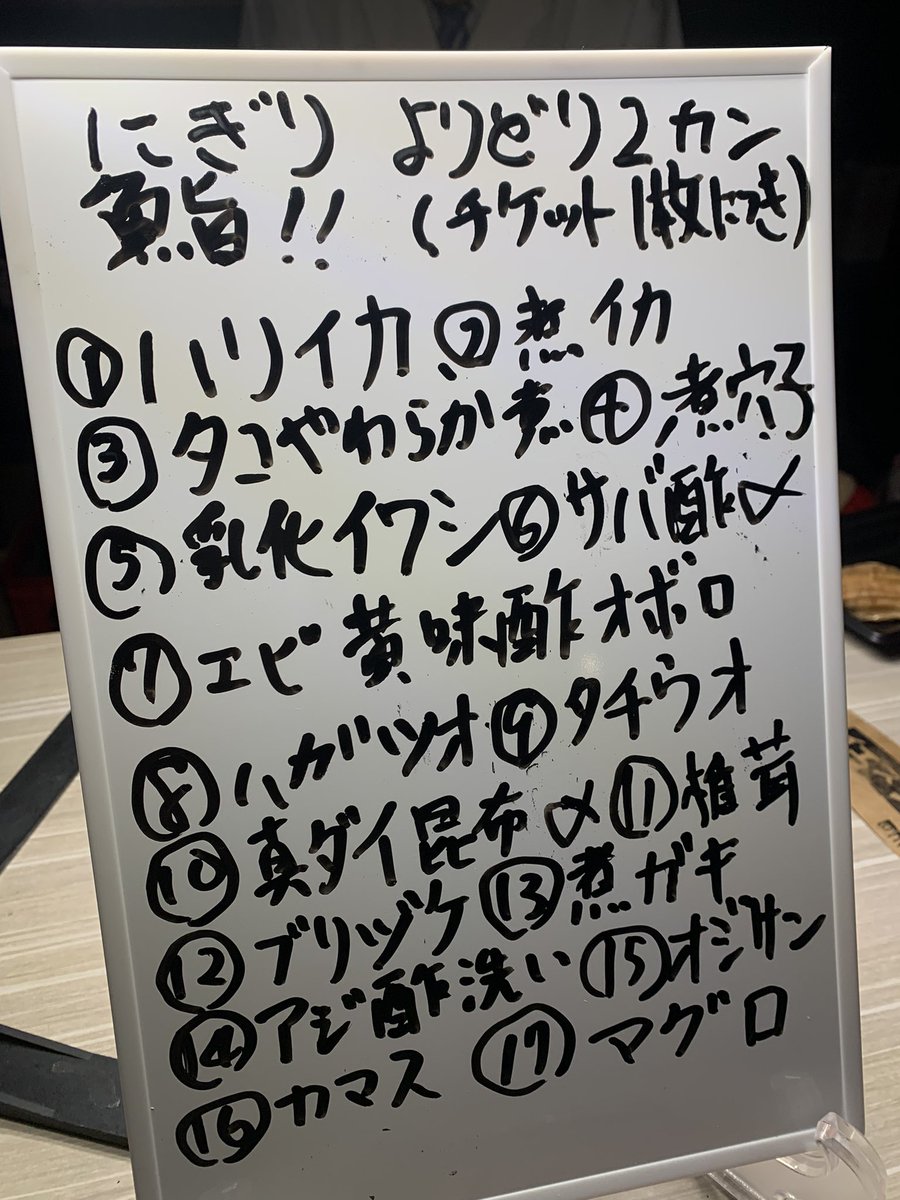 にぎり よりどり2カン
魚旨!! (チケット1枚につき)
①ハリイカ ②煮イカ
③タコやわらか煮 ④煮穴子
⑤乳化イワシ ⑥サバ酢〆
⑦エビ黄味酢オボロ
⑧ハガツオ ⑨タチウオ
⑩真ダイ昆布〆 ⑪椎茸
⑫ブリヅケ ⑬煮ガキ
⑭アジ酢洗い ⑮オジサン
⑯カマス ⑰マグロ